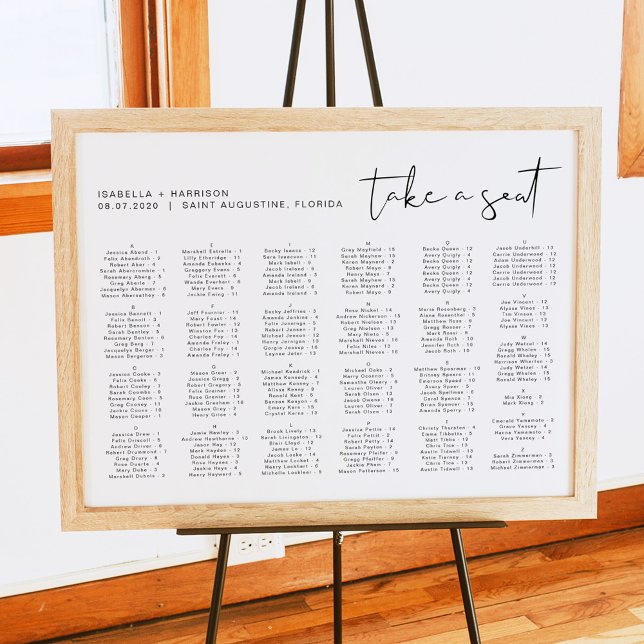 ISABELLA + HARRISON
08.07.2020 | SAINT AUGUSTINE, FLORIDA
take a seat
A
Jessica Abend - 1
Felix Abendroth - 2
Robert Aber - 4
Sarah Abercrombie - 1
Rosemary Aberg - 5
Greg Aberle - 7
Jacquelyn Aberman - 5
Mason Abernathey - 6
B
Jessica Bennett - 1
Felix Benoit - 3
Robert Benson - 4
Sarah Bentley - 5
Rosemary Benton - 6
Greg Berg - 7
Jacquelyn Berger - 1
Mason Bergeron - 3
C
Jessica Cooke - 1
Felix Cooks - 6
Robert Cooley - 2
Sarah Coombs - 9
Rosemary Coon - 5
Greg Cooney - 12
Jackie Coons - 12
Mason Cooper - 1
D
Jessica Downs - 1
Felix Driscoll - 5
Andrew Driver - 6
Robert Drummond - 7
Greg Drury - 8
Rose Duarte - 4
Mary Dube - 3
Marshall Dubois - 5
E
Marshall Estrella - 5
Lilly Etheridge - 11
Amanda Eubanks - 4
Greggory Evans - 5
Felix Evans - 6
Wanda Everhart - 6
Mary Ewens - 9
Jackie Ewing - 11
F
Jeff Fournier - 11
Mary Foust - 14
Robert Fowler - 12
Winston Fox - 13
Charles Foy - 4
Amanda Fraley - 1
Charles Foy - 4
Amanda Fraley - 1
G
Mason Greer - 4
Jessica Gregg - 2
Robert Gregory - 5
Felix Greiner - 5
Rose Grenier - 13
Jackie Gresham - 10
Mason Grey - 2
Henry Griese - 4
H
Jamie Hawley - 3
Andrew Hawthorne - 11
Jason Hay - 13
Mark Hayden - 12
Donald Hayes - 5
Rose Hayden - 4
Jackie Hays - 4
Henry Hayward - 5
I
Becky Isaacs - 12
Sara Isaacson - 11
Mark Isbell - 2
Jacob Ireland - 6
Amanda Ireland - 3
Mark Isbell - 2
Jacob Ireland - 6
Amanda Ireland - 3
J
Becky Jeffries - 3
Amanda Jenkins - 4
Felix Jennings - 5
Robert Jensen - 7
Michael Jensen - 12
Henry Jernigan - 13
Gorgia Jessup - 14
Layne Jeter - 13
K
Michael Kendrick - 1
James Kennedy - 4
Matthew Kenney - 2
Alison Kenny - 5
Ronald Kent - 5
Benson Kenyon - 6
Emory Kern - 5
Crystal Kerns - 13
L
Brook Lively - 13
Sarah Livingston - 3
Blair Lloyd - 12
James Lo - 12
Jacob Locke - 14
Matthew Locket - 4
Henry Lockhart - 6
Michelle Locklear - 5
M
Gray Mayfield - 15
Sarah Mayhew - 15
Karen Maynard - 2
Robert Mayo - 11
Henry Mays - 7
Sarah Mayhew - 15
Karen Maynard - 2
Robert Mayo - 11
N
Rena Nickel - 14
Andrew Nickerson - 15
Robert Nielsen - 13
Greg Nielson - 13
Mary Nieto - 2
Marshall Nieves - 15
Felix Niles - 13
Marshall Nieves - 15
O
Michael Ochs - 12
Harry Oconnor - 5
Samantha Oleary - 6
Lauren Oliver - 2
Sarah Olsen - 13
Jacob Owens - 15
Lauren Oliver - 2
Sarah Olsen - 13
P
Jessica Pettie - 14
Felix Pettit - 2
Robert Petty - 14
Sarah Pettway - 15
Rosemary Pfeifer - 4
Gregg Pfeiffer - 11
Jackie Phem - 7
Mason Patterson - 15
Q
Becka Queen - 12
Avery Quigly - 4
Becka Queen - 12
Avery Quigly - 4
Becka Queen - 12
Avery Quigly - 4
Becka Queen - 12
Avery Quigly - 4
R
Marie Rosenberg - 8
Alana Rosenthal - 11
Matthew Ross - 6
Gregg Rosser - 7
Mark Rossi - 2
Amanda Roth - 11
Jennifer Roth - 4
Jacob Roth - 10
S
Matthew Spearman - 10
Britney Spears - 11
Emerson Speed - 4
Avery Speer - 5
Jacob Spellman - 5
Carol Spence - 7
Brian Spencer - 12
Amanda Sperry - 12
T
Christy Thorsten - 4
Emma Tibbitts - 4
Matt Tibbs - 12
Chris Tice - 11
Austin Tidwell - 13
Katie Tierney - 14
Chris Tice - 11
Austin Tidwell - 13
U
Jacob Underhill - 13
Carrie Underwood - 12
Adam Underwood - 12
Jacob Underwood - 12
Carrie Underwood - 12
Jacob Underwood - 12
V
Joe Vincent - 12
Alyssa Vines - 13
Tim Vinson - 13
Joe Vincent - 12
Alyssa Vines - 13
W
Judy Wetzel - 14
Gregg Whalen - 5
Ronald Whaley - 11
Harrison Wharton - 3
Judy Wetzel - 14
Gregg Whalen - 5
Ronald Whaley - 11
X
Mia Xiong - 2
Mark Xiong - 2
Y
Emerald Yamamoto - 2
Grace Yancey - 4
Harry Yanez - 4
Vera Yansey - 4
Z
Sarah Zimmerman - 3
Michael Zimmerman - 3